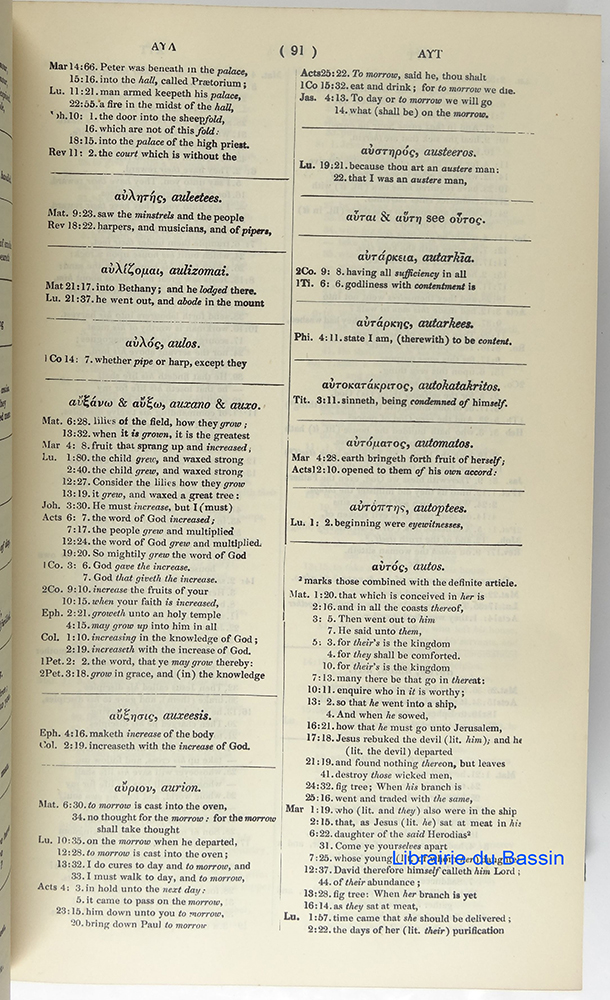 ΑΥΛ
( 91 )
ΑΥΤ
Mar 14:66. Peter was beneath in the palace,
15:16. into the hall, called Prætorium ;
Lu. 11:21. man armed keepeth his palace,
22:55. a fire in the midst of the hall,
oh. 10: 1. the door into the sheepfold,
16. which are not of this fold:
18:15. into the palace of the high priest.
Rev 11: 2. the court which is without the
αὐλητής, auleetees.
Mat. 9:23. saw the minstrels and the people
Rev 18:22. harpers, and musicians, and of pipers,
αὐλίζομαι, aulizomai.
Mat 21:17. into Bethany; and he lodged there.
Lu. 21:37. he went out, and abode in the mount
αὐλός, aulos.
1 Co 14: 7. whether pipe or harp, except they
αὐξάνω & αὔξω, auxano & auxo.
Mat. 6:28. lilies of the field, how they grow ;
13:32. when it is grown, it is the greatest
Mar 4: 8. fruit that sprang up and increased ;
Lu. 1:80. the child grew, and waxed strong
2:40. the child grew, and waxed strong
12:27. Consider the lilies how they grow
13:19. it grew, and waxed a great tree :
Joh. 3:30. He must increase, but I (must)
Acts 6: 7. the word of God increased;
7:17. the people grew and multiplied
12:24. the word of God grew and multiplied.
19:20. So mightily grew the word of God
1 Co. 3: 6. God gave the increase.
7. God that giveth the increase.
2Co. 9:10. increase the fruits of your
10:15. when your faith is increased,
Eph. 2:21. groweth unto an holy temple
4:15. may grow up into him in all
Col. 1:10. increasing in the knowledge of God ;
2:19. increaseth with the increase of God.
1Pet. 2: 2. the word, that ye may grow thereby:
2Pet. 3:18. grow in grace, and (in) the knowledge
αὔξησις, auxeesis.
Eph. 4:16. maketh increase of the body
Col. 2:19. increaseth with the increase of God.
αὔριον, aurion.
Mat. 6:30. to morrow is cast into the oven,
34. no thought for the morrow : for the morrow
shall take thought
Lu. 10:35. on the morrow when he departed,
12:28. to morrow is cast into the oven ;
13:32. I do cures to day and to morrow, and
33. I must walk to day, and to morrow,
Acts 4: 3. in hold unto the next day :
5. it came to pass on the morrow,
23:15. him down unto you to morrow,
20. bring down Paul to morrow
Acts25: 22. To morrow, said he, thou shalt
1Co 15:32. eat and drink ; for to morrow we die.
Jas. 4:13. To day or to morrow we will go
14. what (shall be) on the morrow.
αὐστηρός, austeeros.
Lu. 19:21. because thou art an austere man:
22. that I was an austere man,
αὗται & αὕτη see οὗτος.
αὐτάρκεια, autarkīa.
2Co. 9: 8. having all sufficiency in all
1Ti. 6: 6. godliness with contentment is
αὐτάρκης, autarkees.
Phi. 4:11. state I am, (therewith) to be content.
αὐτοκατάκριτος, autokatakritos.
Tit. 3:11. sinneth, being condemned of himself.
αὐτόματος, automatos.
Mar 4:28. earth bringeth forth fruit of herself;
Acts12:10. opened to them of his own accord:
αὐτόπτης, autoptees.
Lu. 1: 2. beginning were eyewitnesses,
αὐτός, autos.
² marks those combined with the definite article.
Mat. 1:20. that which is conceived in her is
2:16. and in all the coasts thereof,
3: 5. Then went out to him
7. He said unto them,
5: 3. for their's is the kingdom
4. for they shall be comforted.
10. for their's is the kingdom
7:13. many there be that go in thereat:
10:11. enquire who in it is worthy;
13: 2. so that he went into a ship,
4. And when he sowed,
16:21. how that he must go unto Jerusalem,
17:18. Jesus rebuked the devil (lit. him); and he
(lit. the devil) departed
21:19. and found nothing thereon, but leaves
41. destroy those wicked men,
24:32. fig tree; When his branch is
25:16. went and traded with the same,
Mar 1:19. who (lit. and they) also were in the ship
2:15. that, as Jesus (lit. he) sat at meat in his
6:22. daughter of the said Herodias²
31. Come ye yourselves apart
7:25. whose young
Librairie du Bassin
12:37. David therefore himself calleth him Lord ;
44. of their abundance ;
13:28. fig tree: When her branch is yet
16:14. as they sat at meat,
Lu. 1:57. time came that she should be delivered ;
2:22. the days of her (lit. their) purification